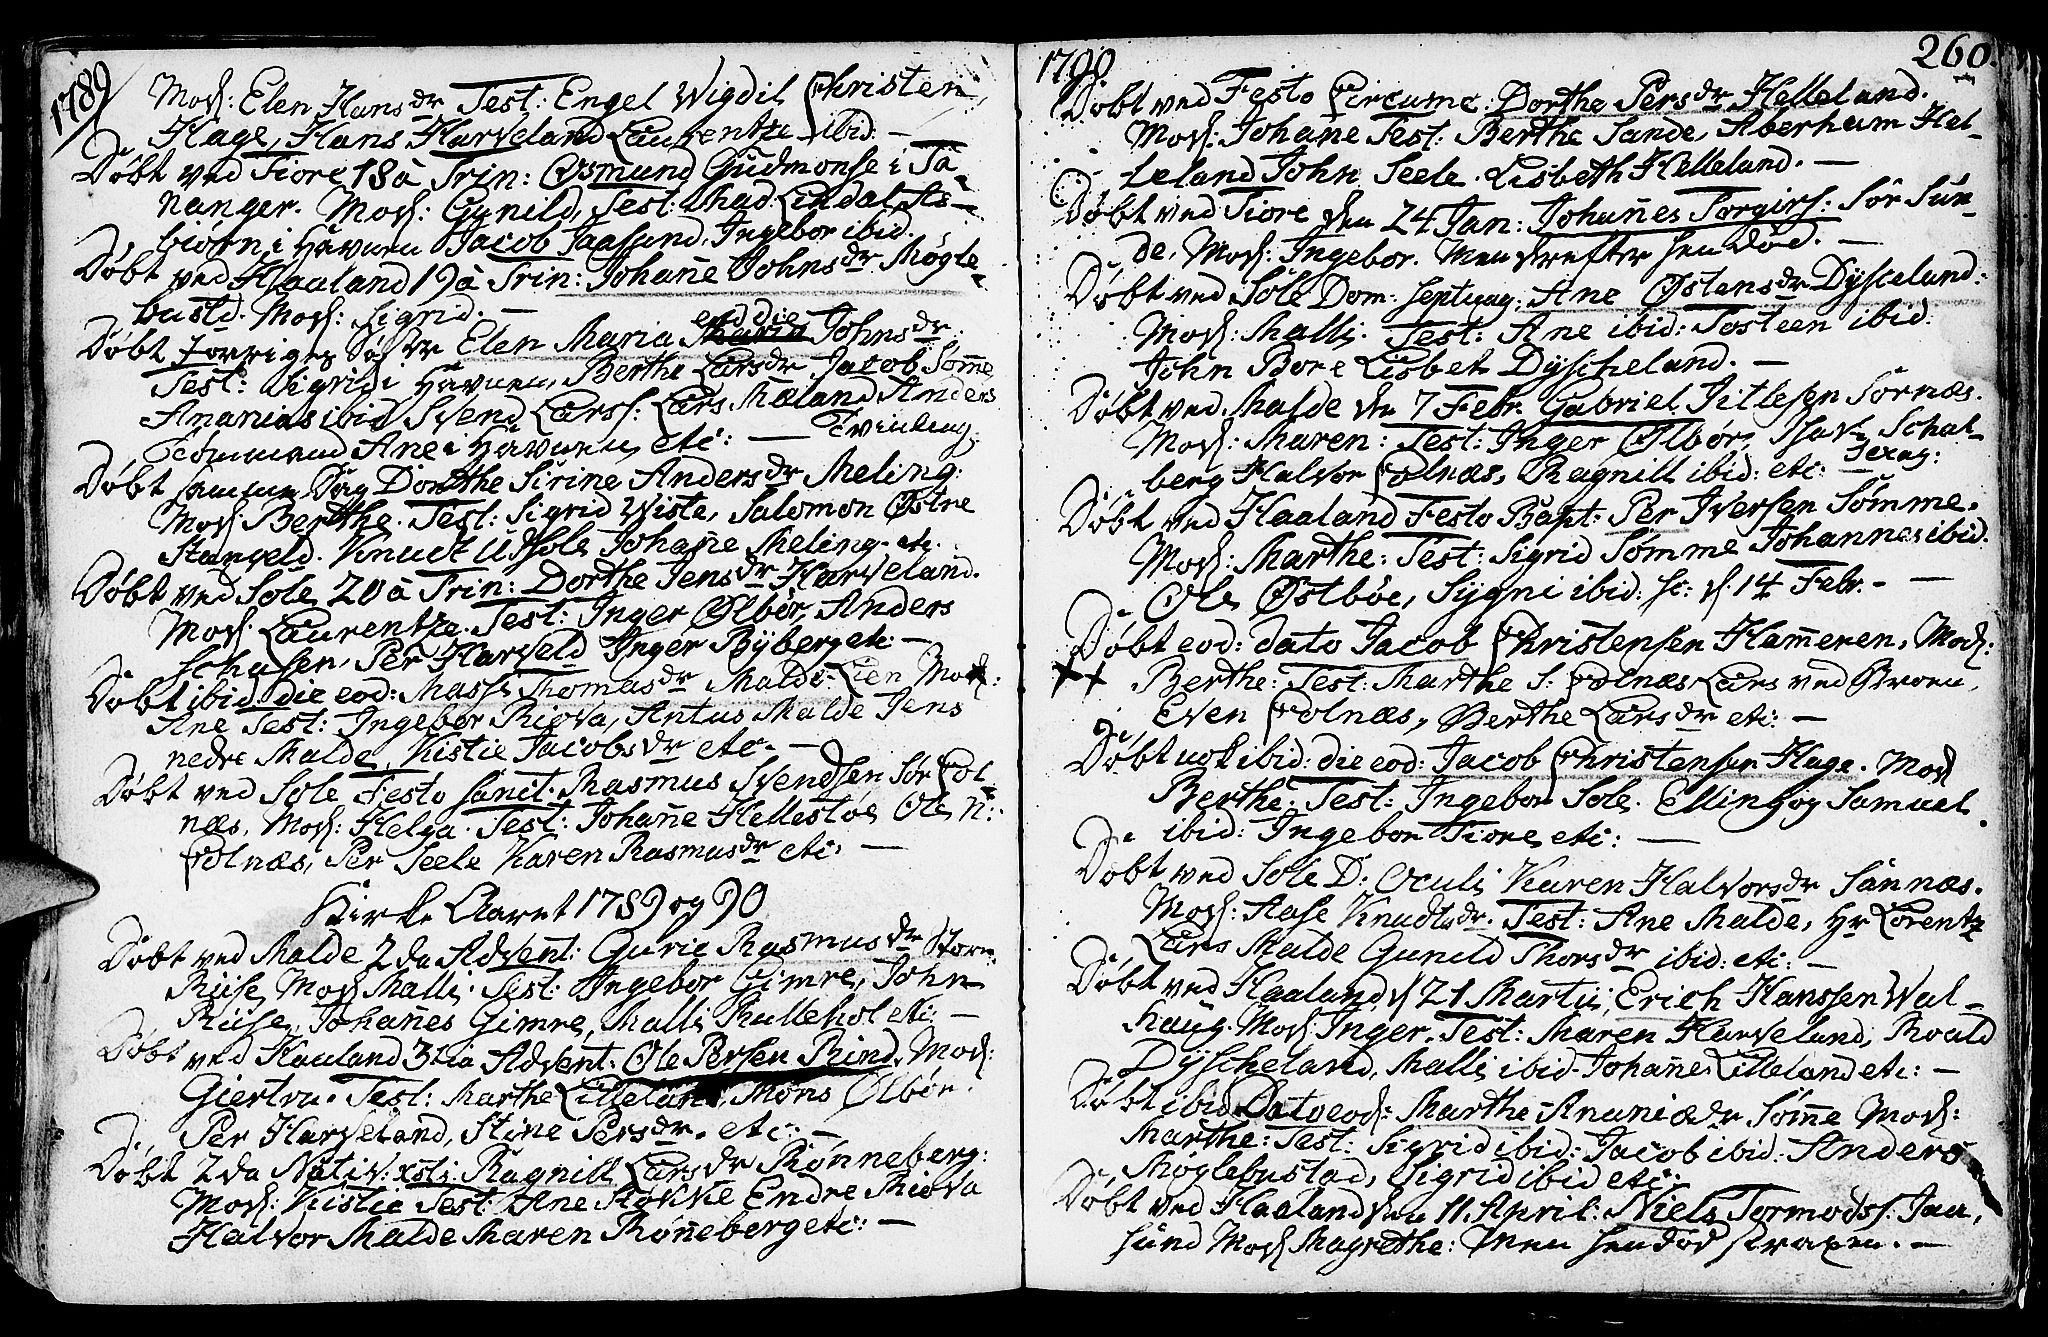 1789
Mod: Elen Hansdr Test: Engel Wigdil Christen
Hage, Hans Harveland Laurentze ibid: —
Døbt ved Tiore 18 à Trin: Osmund Gudmonse i Ta-
nanger. Mod: Gunild, Test: Mad: Lindal As-
biørn i Havnen Jacob Jaasund, Ingebor ibid.
Døbt ved Haaland 19 à Trin: Johañe Johnsdr Møgle-
bustd. Mod: Sigrid. —
Døbt forriges Søster Elen Maria eod die Johnsdr
Test: Sigrid i Havnen, Berthe Larsdr Jacob Sømme
Ananias ibid Svend Larss: Lars Mæland Anders
Tømmend Ane i Havnen etc: — Tvilling:
Døbt samme Dag Dorthe Sirine Andersdr Meling:
Mod Berthe. Test: Sigrid Wiste, Salomon Østre
Stangeld. Knudt Utsole Johañe Meling. etc.
Døbt ved Sole 20 à Trin: Dorthe Jensdr Harveland.
Mod: Laurentze. Test: Inger Ølbør, Anders
Schasen, Per Harveld Inger Byberg etc —
Døbt ibid die eod: Massi Thomasdr Malde-Lien Mod:
Ane Test: Ingebor Riova, Antus Malde Jens
nedre Malde, Kistie Jacobsdr etc. —
Døbt ved Sole Festo Sanct. Rasmus Svendsen Sør Col-
næs. Mod: Helga. Test: Johañe Hellestøe Ole N:
Colnæs, Per Seele Karen Rasmusdr etc: —
Kirke Aaret 1789 og 90
Døbt ved Malde 2da Advent: Gurie Rasmusdr Store
Ruse, Mod Malli. Test: Ingebor Gimre, John
Ruse, Johañes Gimre, Malli Rullehol etc: —
Døbt ved Haaland 3tia Advent: Ole Persen Rind. Mod:
Giertru. Test: Marthe Lilleland, Mons Ølbør.
Per Harveland, Stine Persdr. etc: —
Døbt 2da Nativ: xsti: Ragnill Larsdr Rønneberg:
Mod: Kistie Test: Ane Stokke Endre Riova
Halvor Malde Maren Røneberg etc: —
1790
260.
Døbt ved Festo Circume: Dorthe Persdr Helleland.
Mod: Johañe Test: Berthe Sande, Aberham Hel-
leland John Seele. Lisbeth Helleland. —
Døbt ved Tiore den 24 Jan: Johañes Torgirs: Sør Sun-
de, Mod: Ingebor. Men derefter hen død. —
Døbt ved Sole Dom: septuag: Ane Østensdr Dyscheland:
Mod: Malli. Test: Ane ibid: Tosteen ibid:
John Bore Lisbet Dyscheland. —
Døbt ved Malde den 7 Febr. Gabriel Jitlesen Sørnæs.
Mod: Maren: Test: Inger Ølbør, Isak Schat-
berg Halvor Colnæs, Ragnill ibid: etc: Sexag:
Døbt ved Haaland Festo Bapt: Per Iversen Sømme.
Mod: Marthe: Test: Sigrid Sømme Johannes ibid:
Ole Østbøe, Sygni ibid: sc: d: 14 Febr. —
Døbt eod: dato Jacob Christensen Hameren, Mod:
Berthe: Test: Marthe S: Colnæs Lars ved Broen,
Even Colnæs, Berthe Larsdr etc: —
Døbt nok ibid: die eod: Jacob Christensen Hage. Mod
Berthe: Test: Ingebor Sole. Elling og Samuel
ibid: Ingebor Tiore etc: —
Døbt ved Sole D: Oculi Karen Halvorsdr Sannæs.
Mod: Aase Knudtsdr. Test: Ane Malde, Hr Lorentz
Lars Malde Gunild Thorsdr ibid: etc: —
Døbt ved Haaland d 21 Martii, Erich Hanssen Wal-
haug. Mod: Inger. Test: Maren Harveland, Roald
Dyscheland, Malli ibid. Johañes Lilleland etc: —
Døbt ibid Dato eod: Marthe Ananiædr Sømme Mod:
Marthe: Test: Sigrid ibid: Jacob ibid: Anders
Møglebustad, Sigrid ibid etc:
Døbt ved Haaland den 11. April: Niels Tormods: Jaa-
sund Mod Magrethe: Men hen død strapen. —